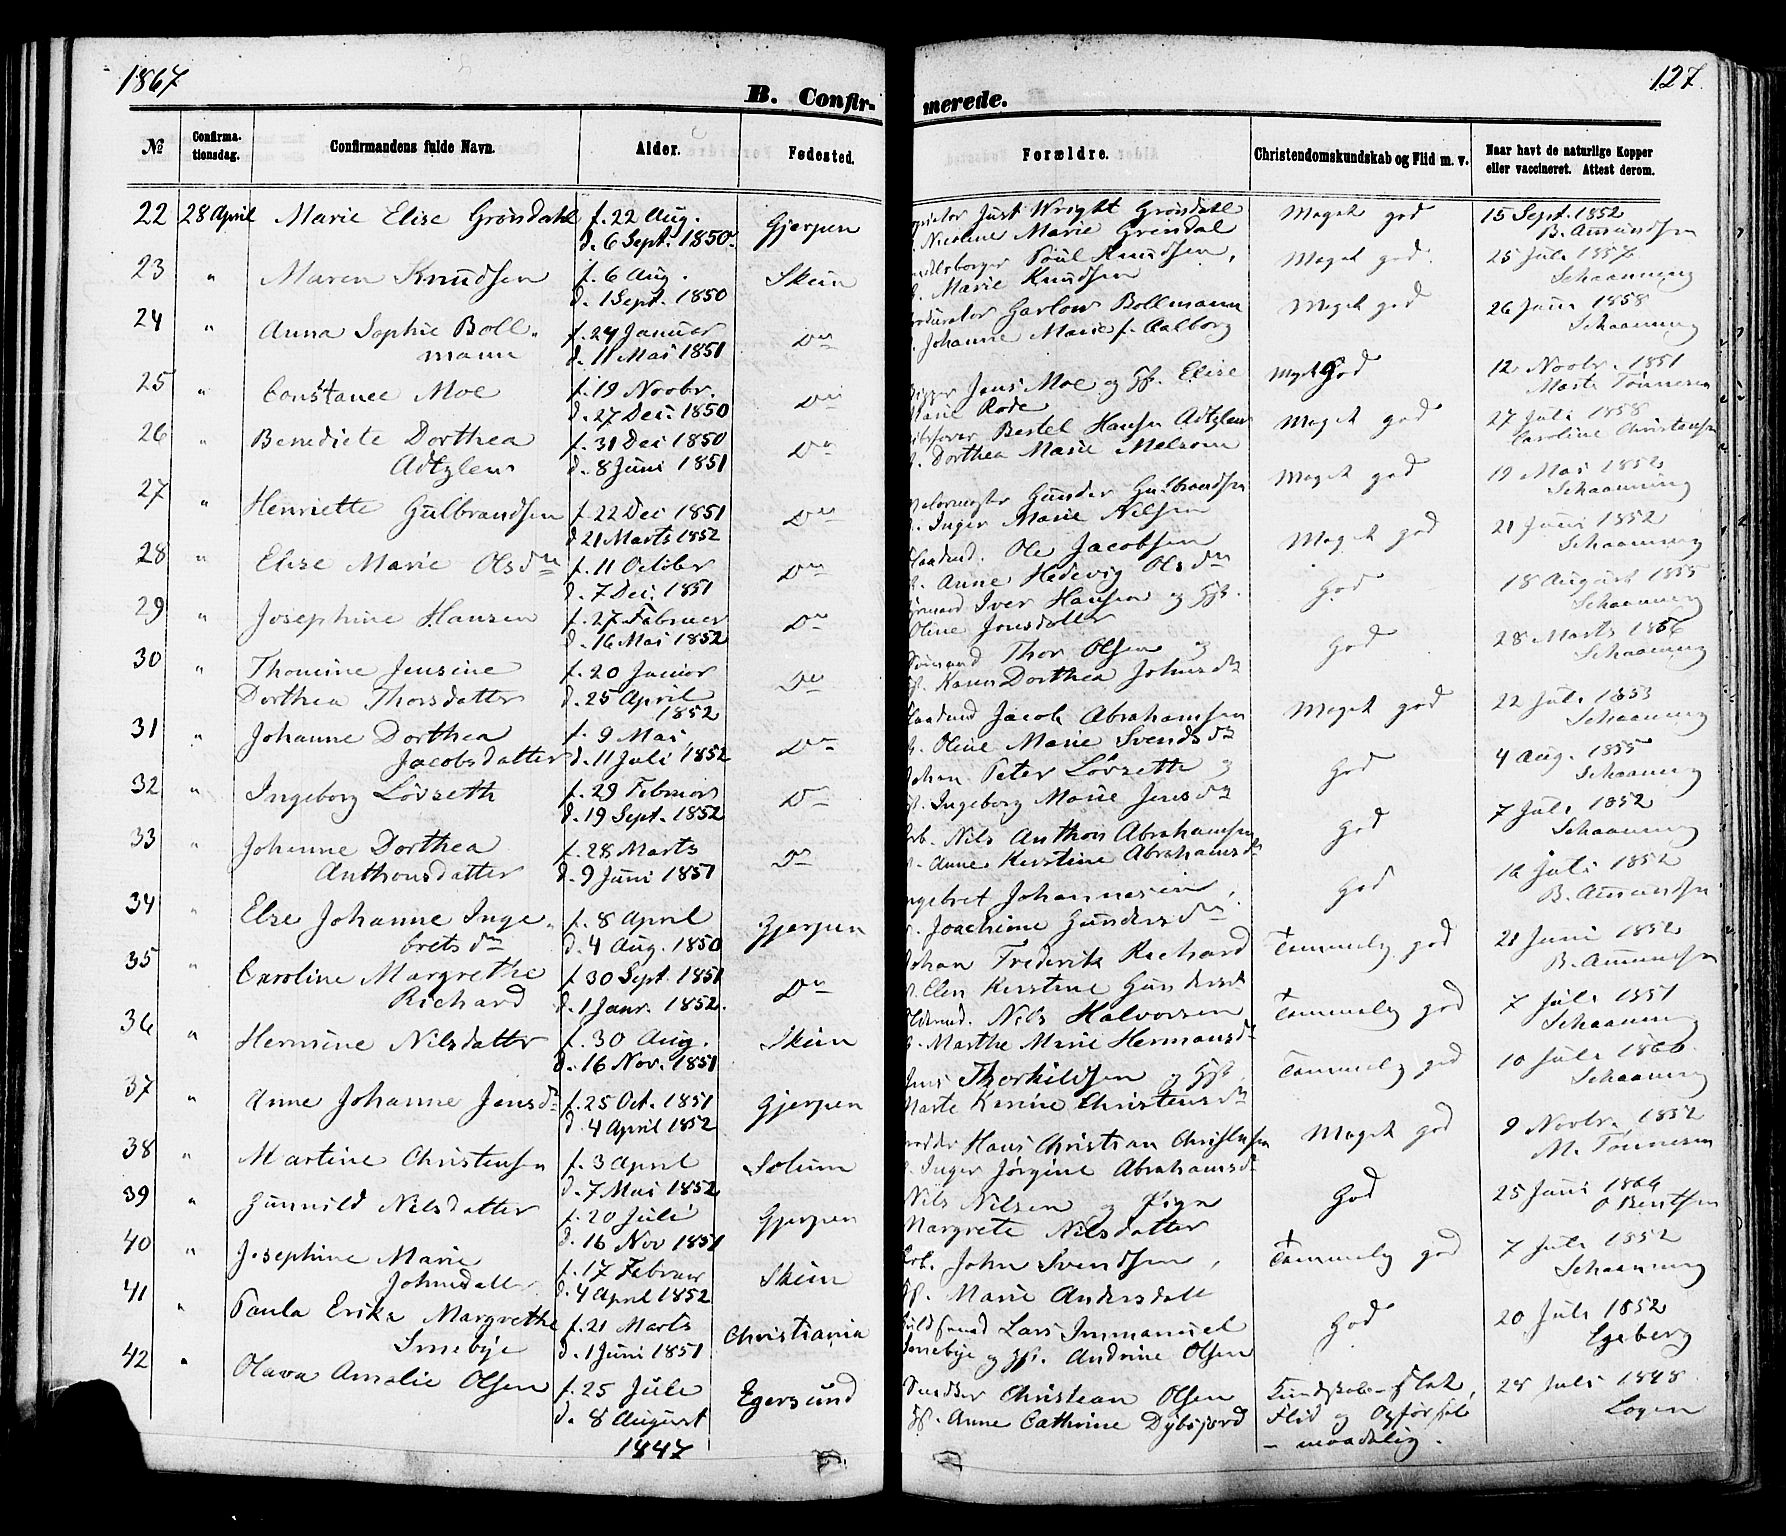 1867
127.
B. Confir-
merede.
№ Confirma-tionsdag. Confirmandens fulde Navn. Alder. Fødested. Forældre. Christendomskundskab og Flid m. v. Naar havt de naturlige Kopper eller vaccineret. Attest derom.
22 28 April Marie Elise Grönsdahl f. 22 Aug. Gjerpen Just Wright Grönsdahl Meget god 15 Sept. 1852
d. 6 Sept. 1850. Nicoline Marie Grendal B. Amundsen
23 " Maren Knudsen f. 6 Aug. Skien Poul Knudsen, Meget god 25 Juli
d. 1 Sept. 1850 Marie Knudsen Schaanning
24 " Anna Sophie Boll- f. 24 Januer Do Garlow Bollmann Meget god 26 Juni 1858
mann d. 11 Mai 1851 Johanne Marie f. Aalborg Schaanning
25 " Constance Moe f. 19 Novbr. Do Jens Moe og Gf. Elise Meget God 12 Novbr. 1851
d. 27 Dec. 1850 Marie Rode Marte Tönnesen
26 " Benedicte Dorthea f. 31 Dec 1850 Do Bertel Hansen Adtzlen Meget god 27 Juli 1858
Adtzlens d. 8 Juni 1851 Dorthea Marie Melsom Caroline Christensen
27 " Henriette Gulbrandsen f. 22 Dec 1851 Do Gunder Gulbrandsen Meget god 19 Mai 1852
d. 21 Marts 1852 Inger Marie Nilsen Schaanning
28 " Elise Marie Olsdtr f. 11 October Do Ole Jacobsen Meget god 21 Juni 1852
d. 7 Dec. 1851 Anne Hedevig Olsdtr Schaanning
29 " Josephine Hansen f. 27 Februer Do Iver Hansen og Gf. God 18 August 1855
d. 16 Mai 1852 Oline Jonsdatter Schaanning
30 " Thomine Jensine f. 20 Januer Do Thor Olsen og God 28 Marts 1856
Dorthea Thorsdatter d. 25 April Karen Dorthea Johnsdtr Schaanning
1852
31 " Johanne Dorthea f. 9 Mai, Do Jacob Abrahamsen Meget god 22 Juli 1853
Jacobsdatter d. 11 Juli 1852 Oline Marie Svendsdtr Schaanning
32 " Ingeborg Lövseth f. 29 Februar Do Johan Peter Lövseth og God 4 Aug. 1855
d. 19 Sept. 1852 Ingeborg Marie Jensdtr Schaanning
33 " Johanne Dorthea f. 28 Marts Do Nils Anthon Abrahamsen God 7 Juli 1852
Anthonsdatter d. 9 Juni 1851 Anne Kirstine Abrahamsdtr Schaanning
34 " Else Johanne Inge- f. 8 April Gjerpen Johannesen, God 16 Juli 1852
bretsdtr d. 4 Aug. 1850 Joachime Gundersdtr B. Amundsen
35 " Caroline Margrethe f. 30 Sept. 1851 Do Johan Frederik Richard Temmelig god 21 Juni 1852
Richard d. 1 Janr. 1852. Elen Kirstine Gundersdtr B. Amundsen
36 " Hermine Nilsdatter f. 30 Aug. Skien Nils Halvorsen Temmelig god 7 Juli 1851
d. 16 Nov. 1851 Marthe Marie Hermansdtr Schaanning
37 " Anne Johanne Jensdtr f. 25 Oct. 1851 Gjerpen Jens Thorkildsen og Gf. Temmelig god 10 Juli 1866
d. 4 April 1852 Marte Karine Christensdtr Schaanning
38 " Martine Christensen f. 3 April Solum Hans Christian Christensen Meget god 9 Novbr. 1852
d. 7 Mai 1852 Inger Jörgine Abrahamsdtr M. Tönnesen
39 " Gunnild Nilsdatter f. 20 Juli Gjerpen Nils Nilsen og Pigen God 25 Juni
d. 16 Nov 1851 Margrete Nilsdatter O Bentsen
40 " Josephine Marie f. 17 Februer Skien John Svendsen, Temmelig god 7 Juli 1852
Johnsdatter d. 4 April 1852 Marie Andersdatt Schaanning
41 " Paula Erika Margrethe f. 21 Marts Christiania Lars Immanuel God 20 Juli 1852
Smebye d. 1 Juni 1851 Smebye og Gf. Andrine Olsen Egeberg
42 " Olava Amalie Olsen f. 25 Jule Egersund Snedker Christian Olsen Kundskab-slet, 28 Juli 1848
d. 8 August Gf. Anne Cathrine Dybsjord Flid og Opförsel Logen
1847 - maadelig.